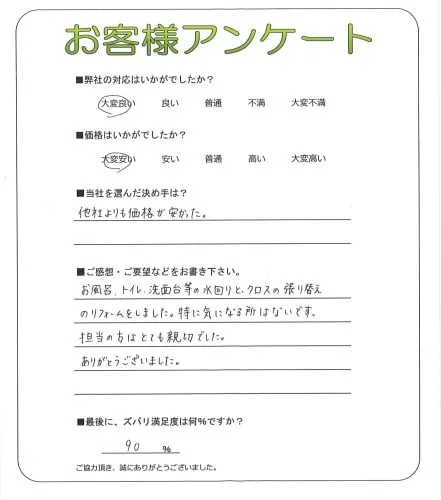 お客様アンケート
■弊社の対応はいかがでしたか？
大変良い 良い 普通 不満 大変不満
■価格はいかがでしたか？
大変安い 安い 普通 高い 大変高い
■当社を選んだ決め手は？
他社よりも価格が安かった。
■ご感想・ご要望などをお書き下さい。
お風呂、トイレ、洗面台等の水回りと、クロスの張り替え
のリフォームをしました。特に気になる所はないです。
担当の方はとても親切でした。
ありがとうございました。
■最後に、ズバリ満足度は何％ですか？
90 %
ご協力頂き、誠にありがとうございました。